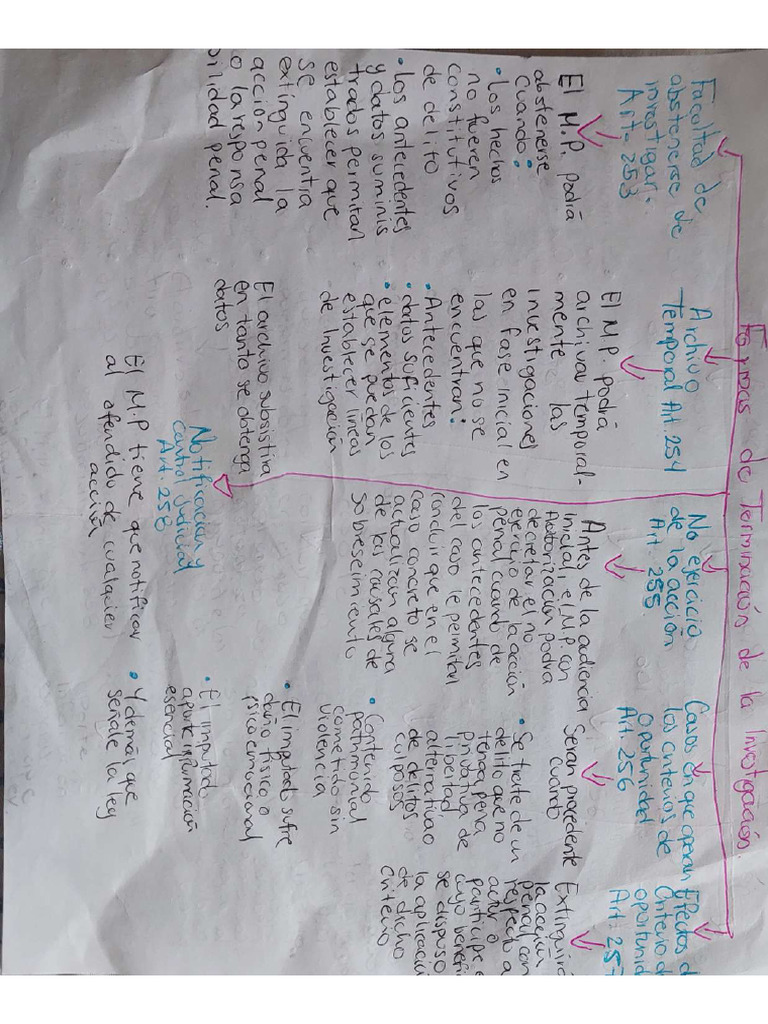 Formas de Terminación de la Investigación.
Facultad de
abstenerse de
investigar.
Art. 253
El M.P. podrá
abstenerse
cuando:
• Los hechos
no fueren
constitutivos
de delito
• Los antecedentes
y datos suminis
trados permitan
establecer que
se encuentra
extinguida la
acción penal
o la responsa
bilidad penal.
Archivo
Temporal Art. 254
El M.P. podrá
archivar temporal-
mente las
investigaciones
en fase inicial en
las que no se
encuentran:
• Antecedentes
• datos suficientes
• elementos de los
que se puedan
establecer líneas
de Investigación
El archivo subsistira
en tanto se obtenga
datos
No ejercicio
de la acción
Art. 255
Antes de la audiencia
inicial, el M.P. con
Autorización podra
decretar el no
ejercicio de la acción
penal cuando de
los antecedentes
del caso le permitan
concluir que en el
caso concreto se
actualizan alguna
de las causales de
sobreseimiento
Casos en que operan
los criterios de
Oportunidad
Art. 256
Seran procedente
cuando
• Se trate de un
delito que no
tenga pena
privativa de
libertad,
alternativa o
de delitos
culposos
• Contenido
patrimonial
cometido sin
violencia
• El imputado sufre
daño físico o
psicoemocional
• El imputado
aporte información
esencial
• Y demás que
señale la ley
Efectos d
Criterio d
oportunid
Art. 257
Extinguirá
la acción
penal con
respecto a
autor o
participe
cuyo benefi
se dispuso
la aplicació
de dicho
criterio
Notificación y
control judicial
Art. 258
El M.P tiene que notificar
al ofendido de cualquier
acción